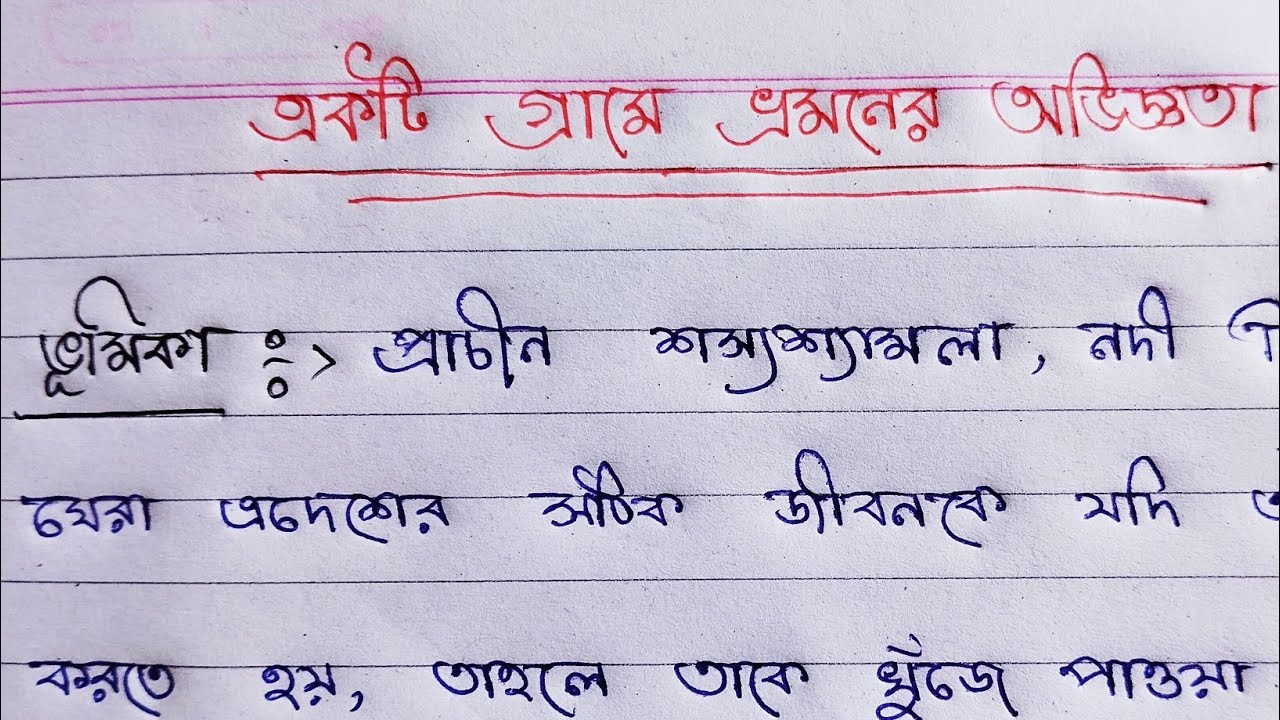 একটি গ্রামে ভ্রমনের অভিজ্ঞতা
ভূমিকা ঃ-> প্রাচীন শস্যশ্যামলা, নদী
ঘেরা এদেশের সঠিক জীবনকে যদি
করতে হয়, তাহলে তাকে খুঁজে পাওয়া